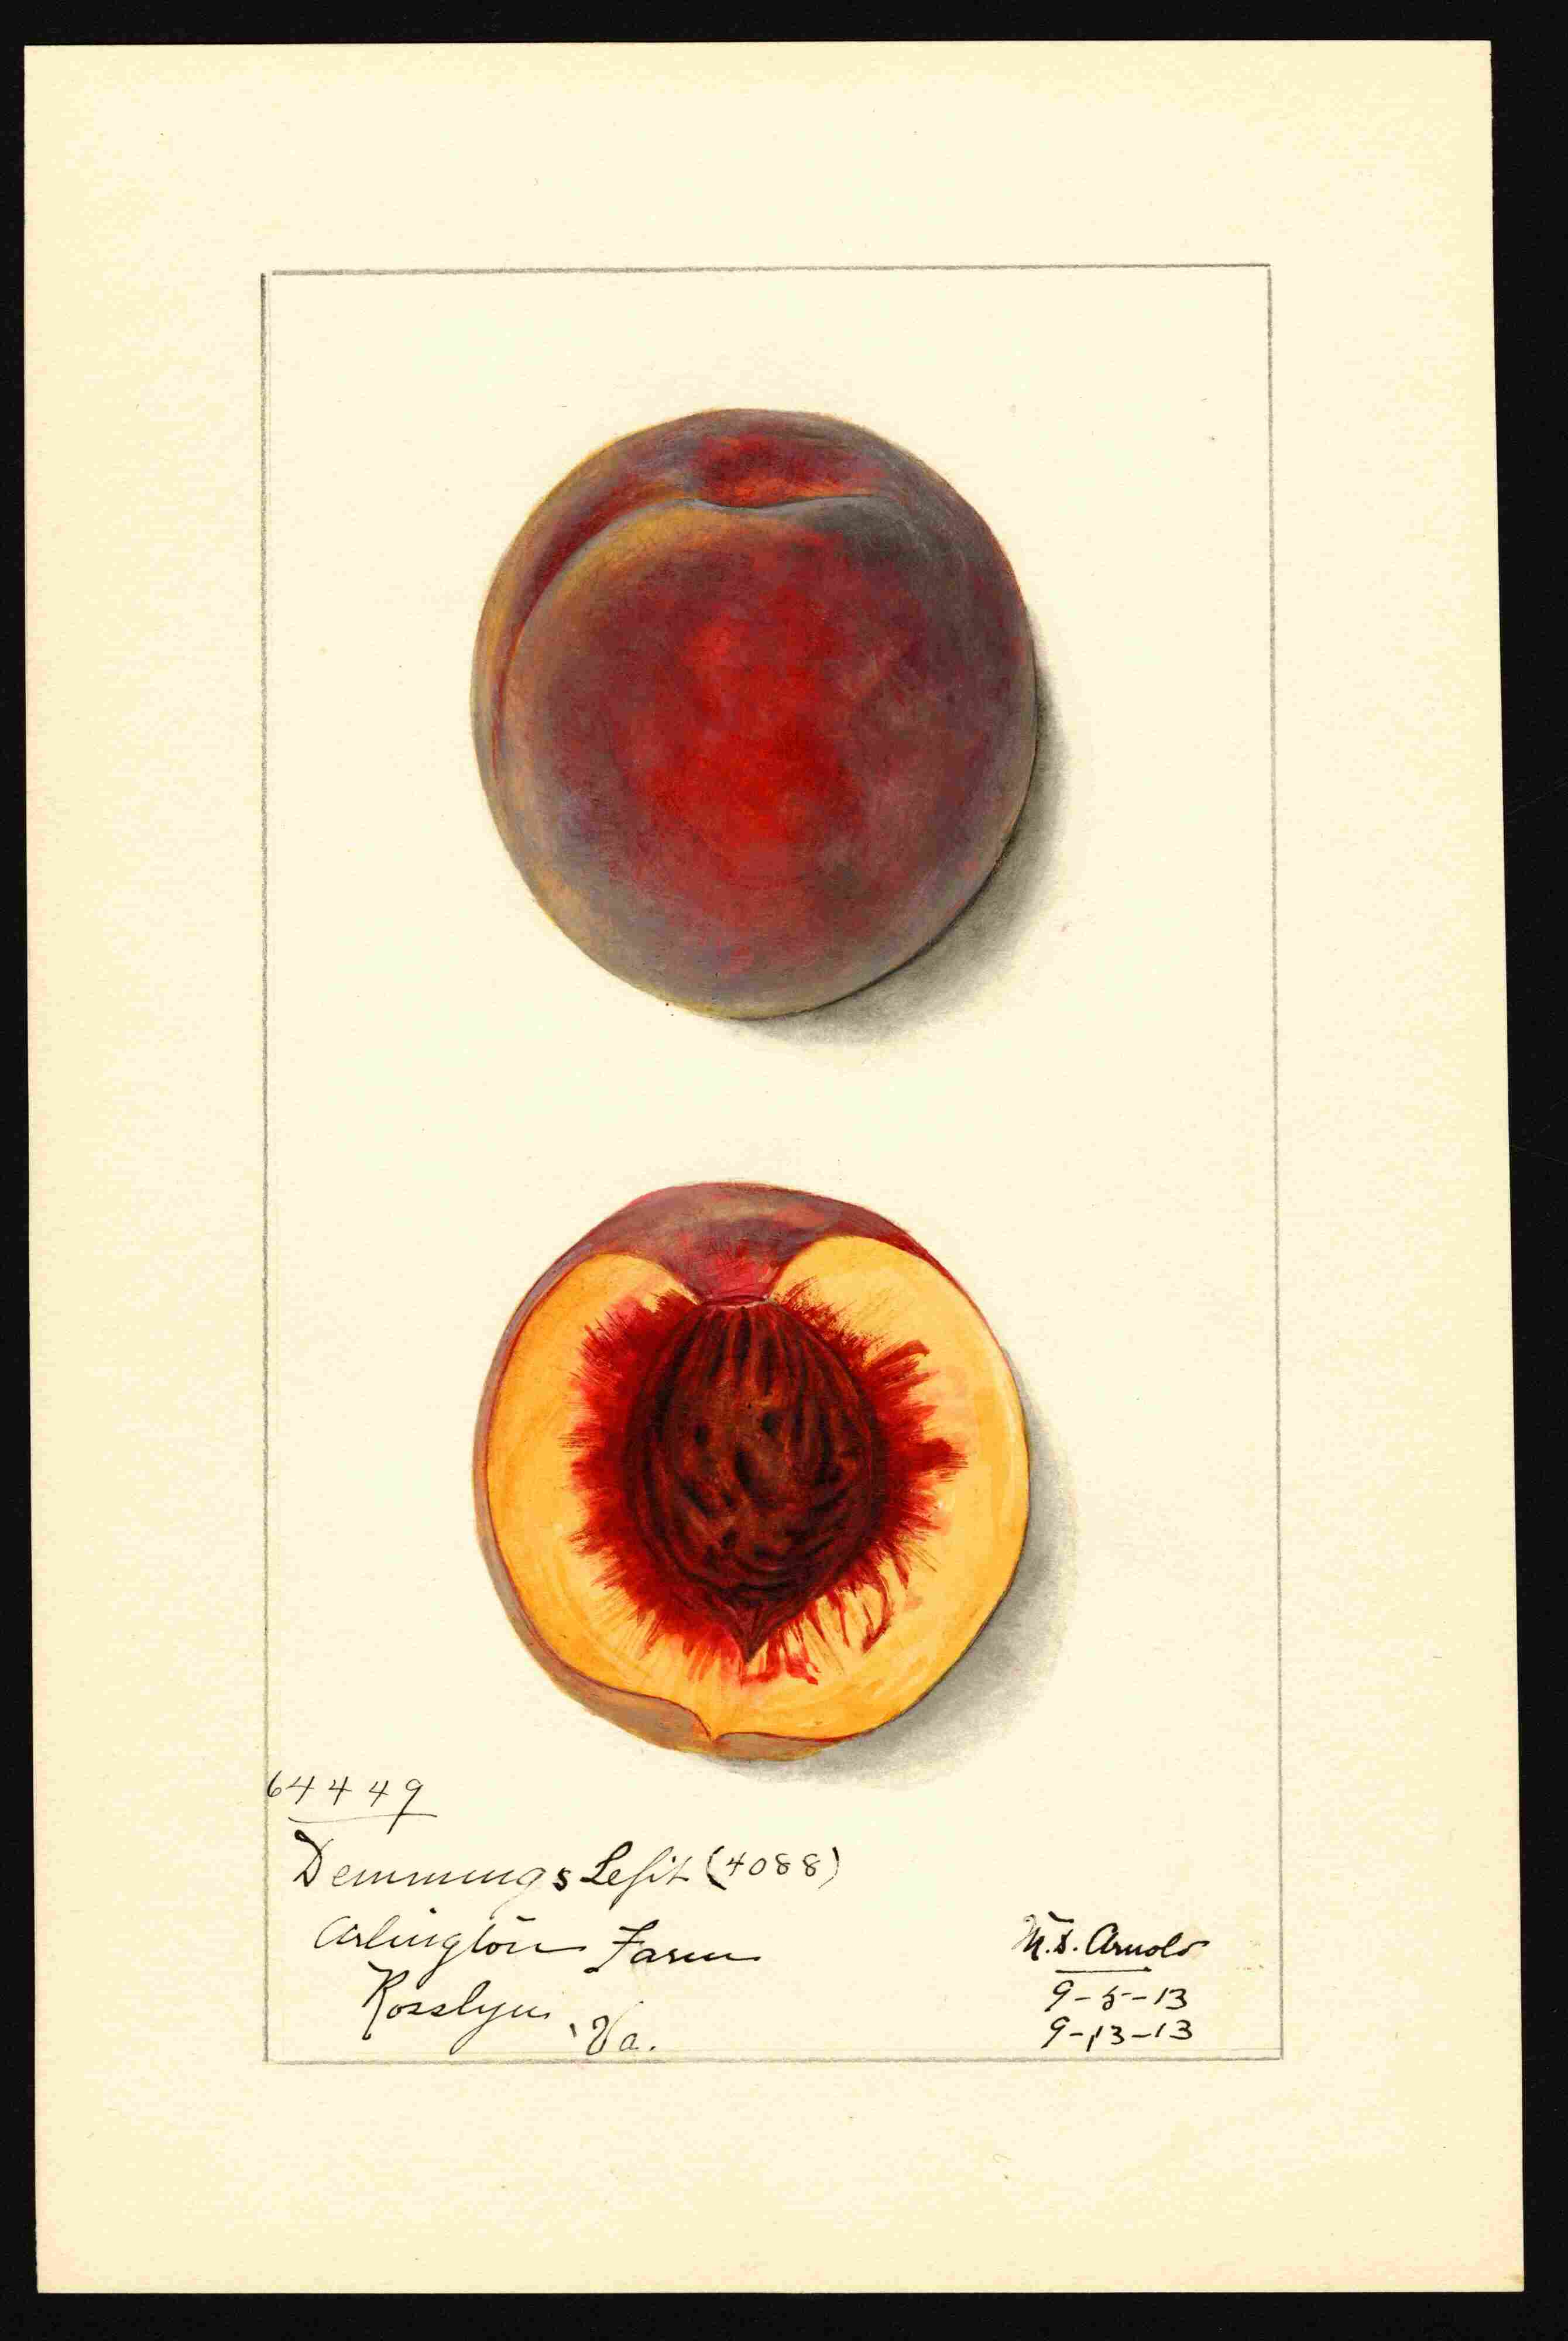 64449
Demmings Sefit (4088)
Arlington Farm
Rosslyn, Va.
M.D. Arnold
9-5-13
9-13-13